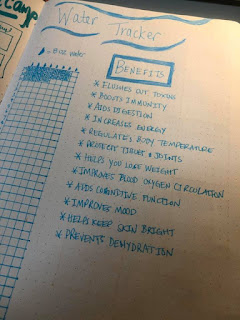 Camp
Water
Tracker
= 8 oz water
BENEFITS
* FLUSHES OUT TOXINS
* BOOSTS IMMUNITY
* AIDS DIGESTION
* INCREASES ENERGY
* REGULATES BODY TEMPERATURE
* PROTECT TISSUE & JOINTS
* HELPS YOU LOSE WEIGHT
* IMPROVES BLOOD OXYGEN CIRCULATION
* AIDS COGNITIVE FUNCTION
* IMPROVES MOOD
* HELPS KEEP SKIN BRIGHT
* PREVENTS DEHYDRATION